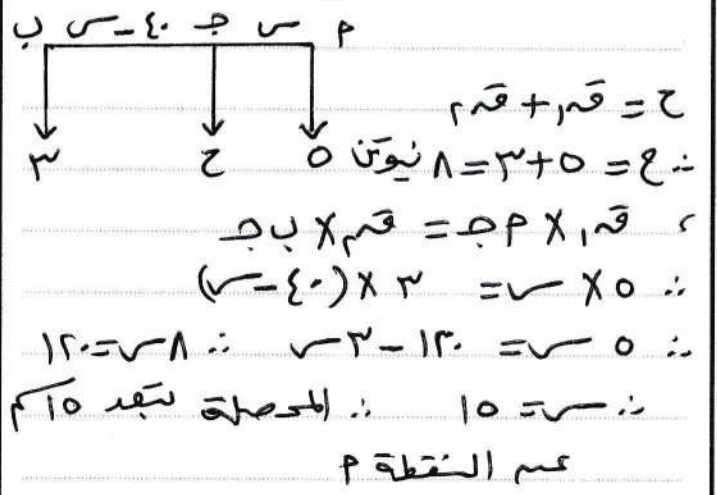 ب ٤٠ - س جـ س م
٣ ح ٥
ح = ق١ + ق٢
∴ ح = ٥ + ٣ = ٨ نيوتن
، ق١ × م جـ = ق٢ × ب جـ
∴ ٥ × س = ٣ × (٤٠ - س)
∴ ٥ س = ١٢٠ - ٣ س ∴ ٨ س = ١٢٠
∴ س = ١٥ ∴ المحصلة تبعد ١٥ سم
عن النقطة م